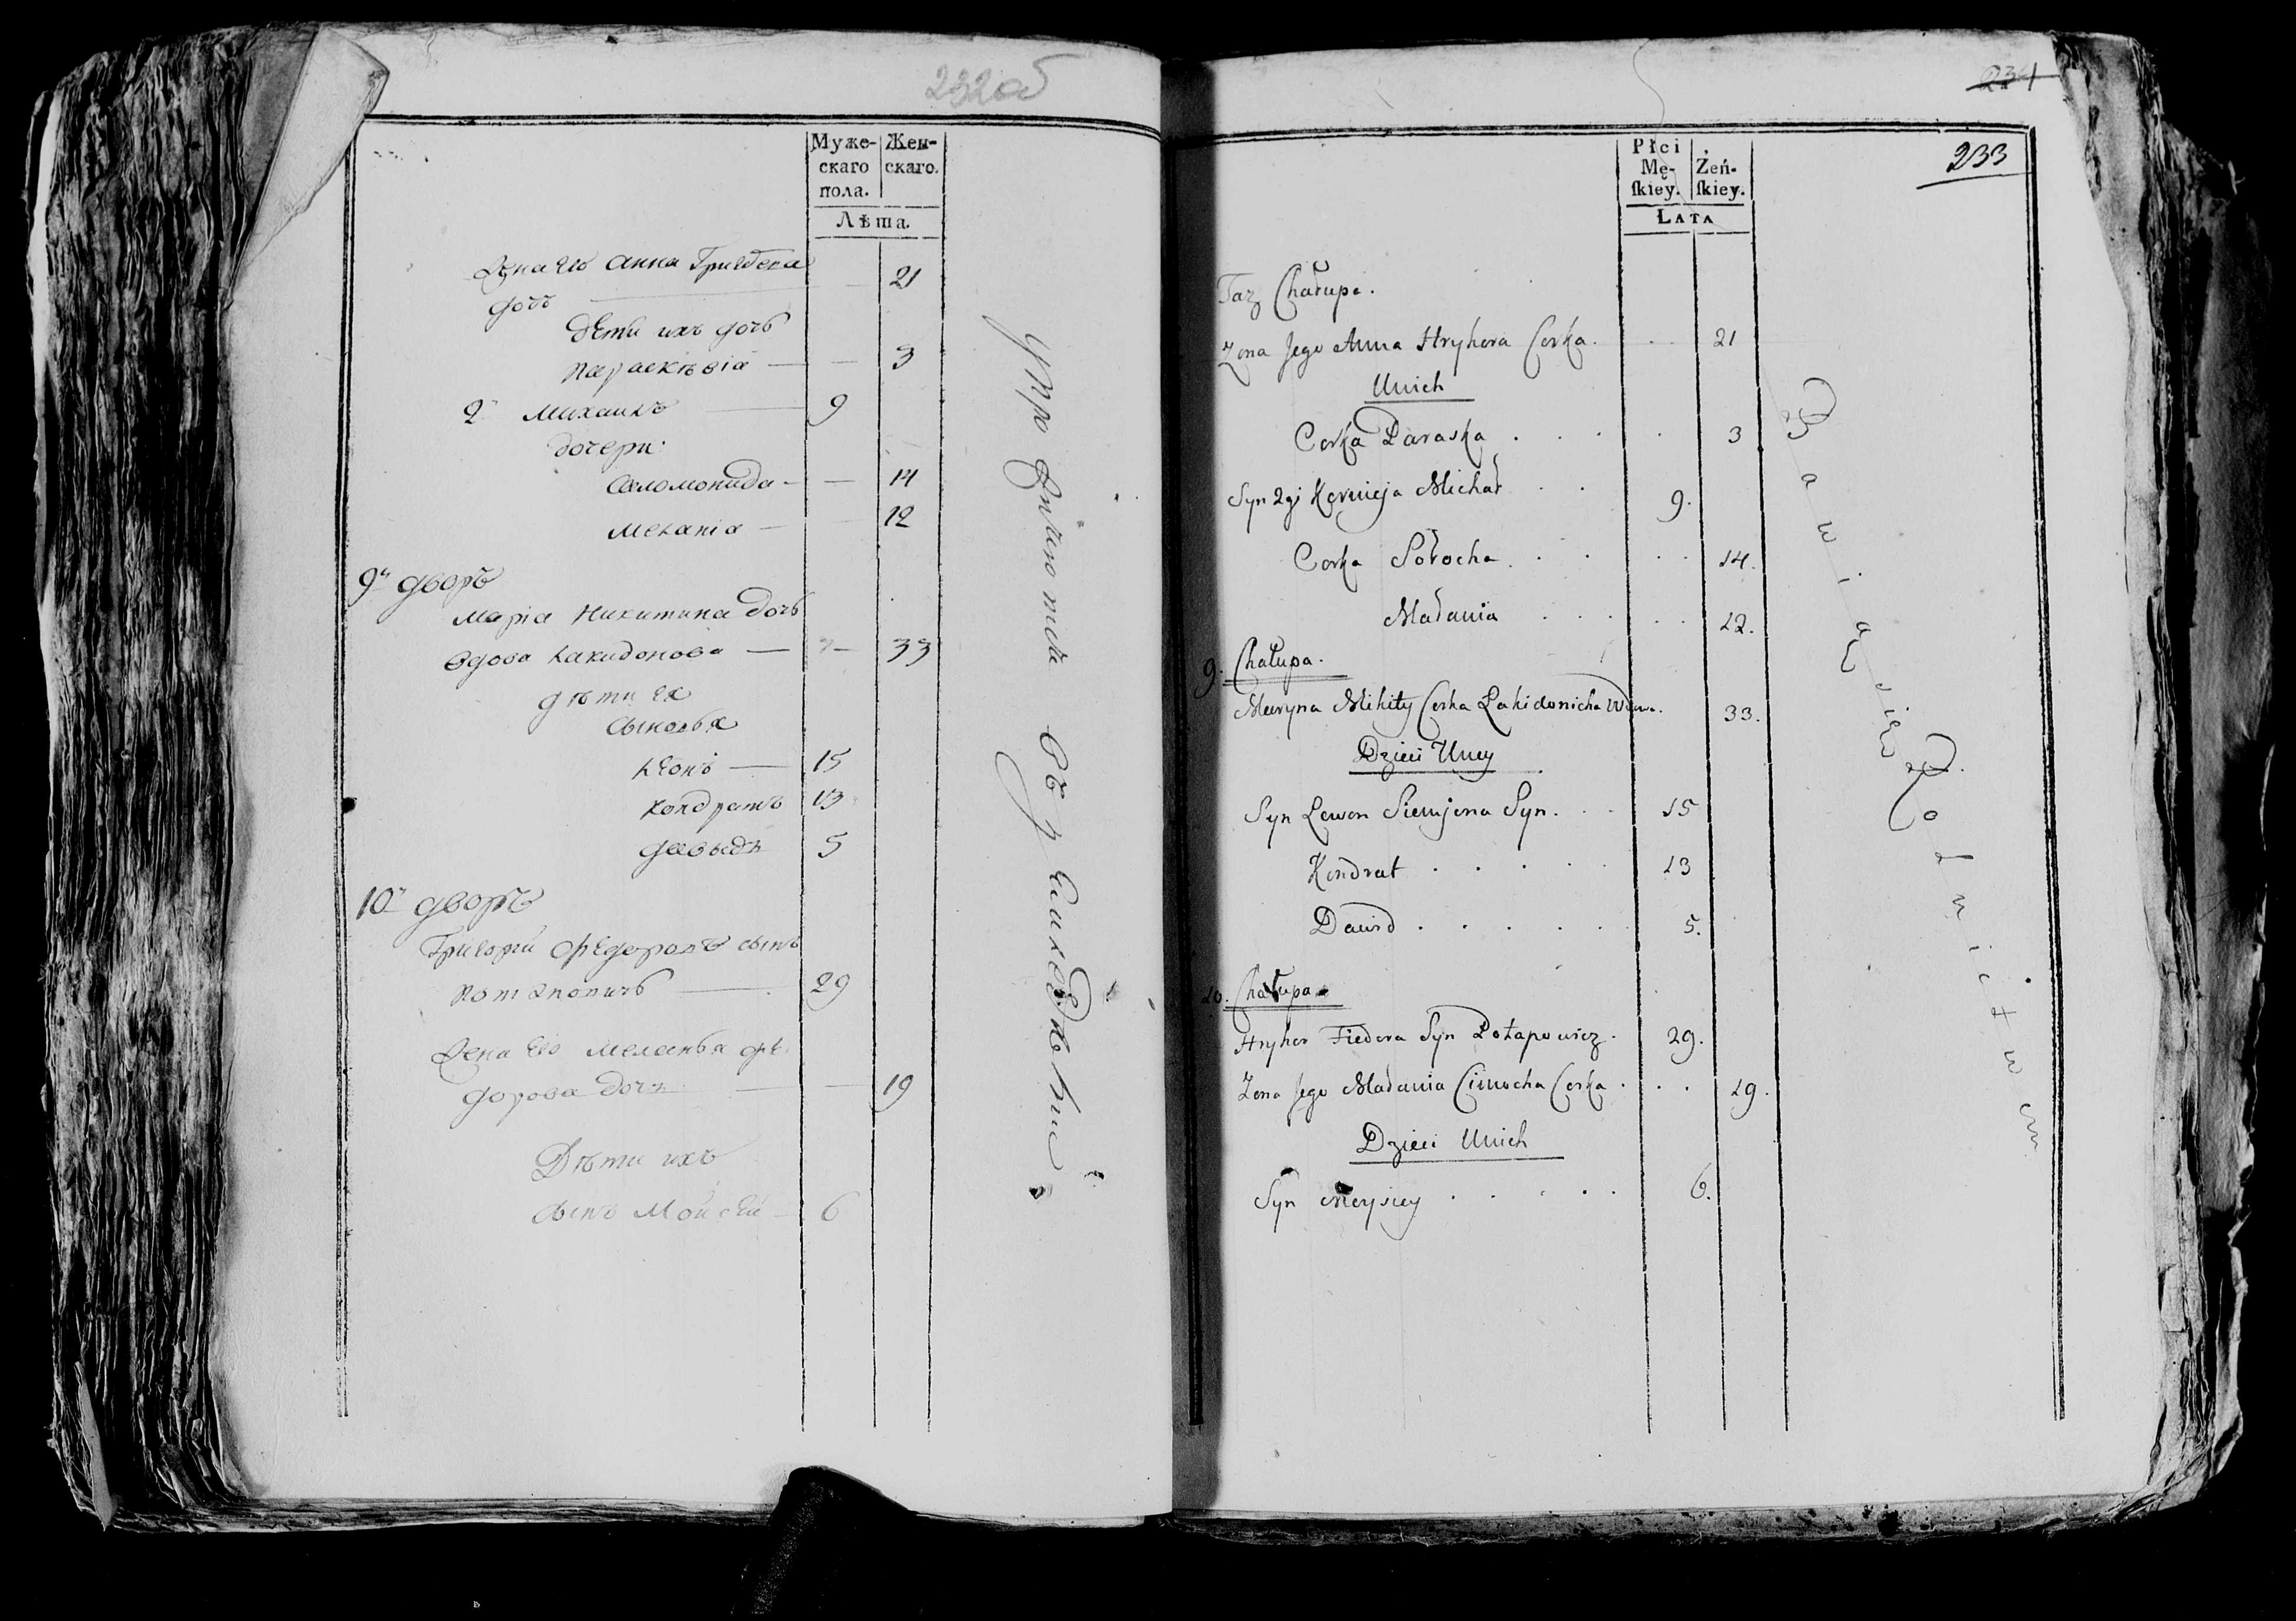 232об
Муже-
скаго
пола.
Жен-
скаго.
Лѣта.
Жена его Анна Григорева
дочь — 21
дѣти ихъ дочь
Параскѣвія — — 3
2й Михаилъ — 9
дочери:
Соломонида — — 14
Меланіа — — 12
9й дворъ
Маріа Никитина дочь
вдова Лакидонова — — 33
дѣти ея
сыновья
Леонъ — 15
Кондратъ 13
Давыдъ 5
10й дворъ
Григорій Федоровъ сынъ
Потаповичъ — 29
Жена его Меланья Фе-
дорова дочь — — 19
Дѣти ихъ
сынъ Мойсей — 6
упражняютца въ земледелии
231
233
Płci
Mę-
ſkiey.
Żeń-
ſkiey.
LATA
Taz Chałupa.
Zona Jego Anna Hryhora Corka . . . 21
Unich
Corka Paraska . . . . 3
Syn 2gi Kornieja Michał . . 9.
Corka Sołocha . . . . 14.
Małania . . . . . 12.
9. Chałupa.
Maryna Mikity Corka Łakidonicha Wdowa. 33.
Dzieci Uniey
Syn Lewon Siemjona Syn . . . 15
Kondrat . . . . . 13
Dawid . . . . . . 5.
10. Chałupa
Hryhor Fiedora Syn Potapowicz . 29.
Zona Jego Maładnia Cimocha Corka . . . 19.
Dzieci Unich
Syn Moysiey . . . . . 6.
Bawiąsię Rolnictwem